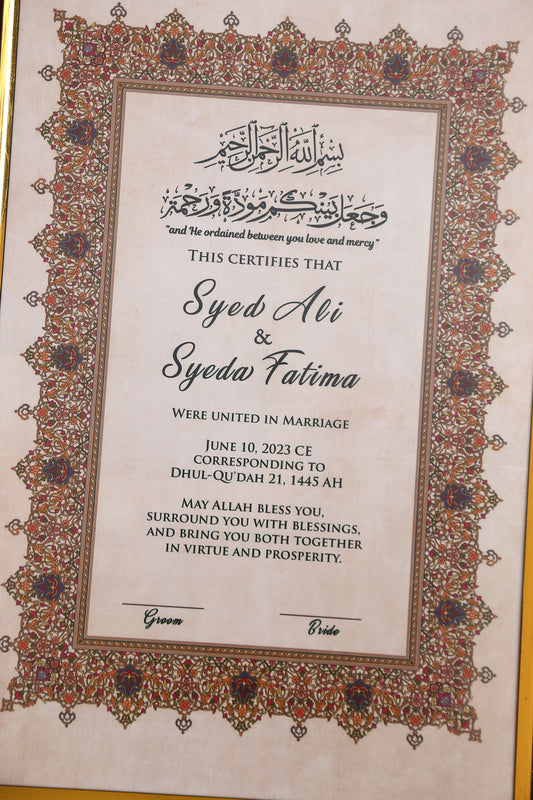 بِسْمِ اللَّهِ الرَّحْمَٰنِ الرَّحِيمِ
وَجَعَلَ بَيْنَكُم مَّوَدَّةً وَرَحْمَةً
"and He ordained between you love and mercy"
THIS CERTIFIES THAT
Syed Ali
&
Syeda Fatima
WERE UNITED IN MARRIAGE
JUNE 10, 2023 CE
CORRESPONDING TO
DHUL-QU'DAH 21, 1445 AH
MAY ALLAH BLESS YOU,
SURROUND YOU WITH BLESSINGS,
AND BRING YOU BOTH TOGETHER
IN VIRTUE AND PROSPERITY.
Groom
Bride